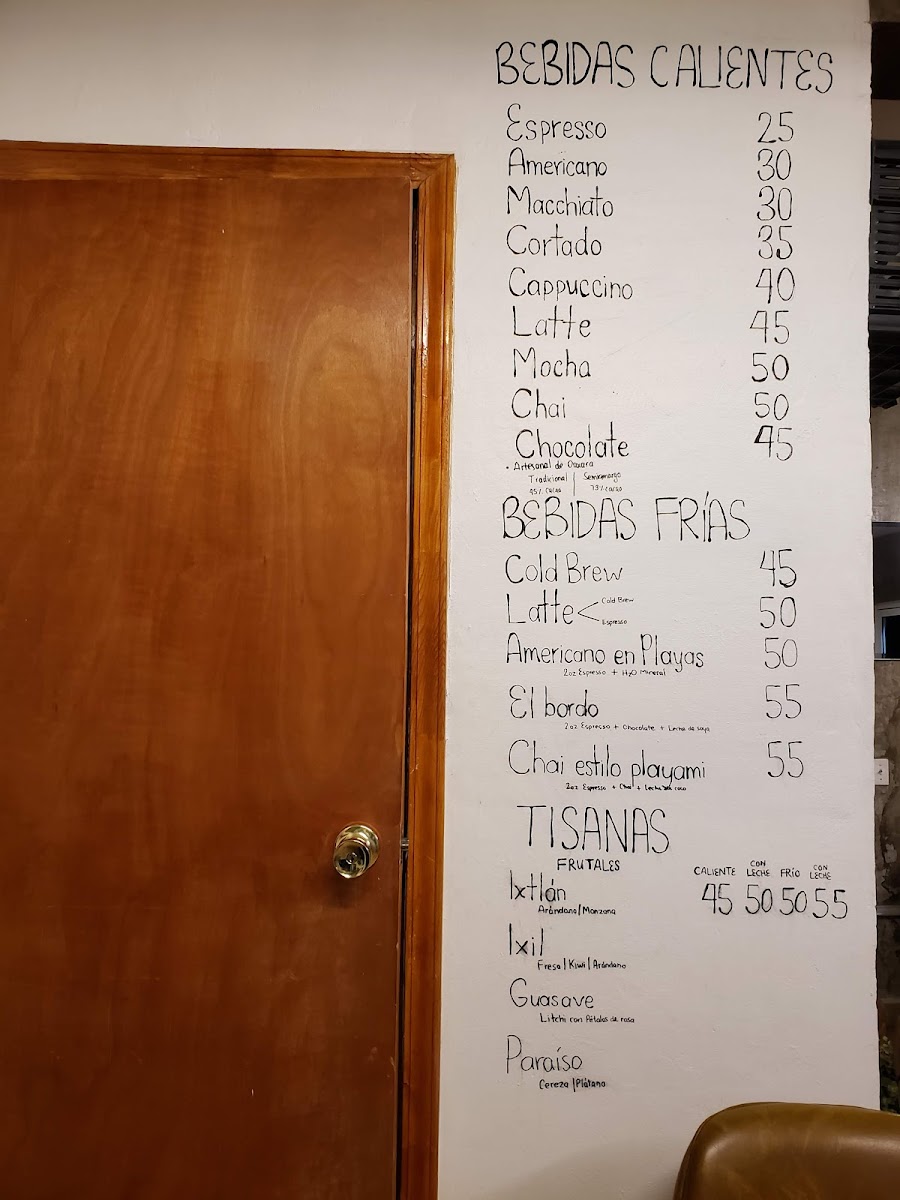 BEBIDAS CALIENTES
Espresso 25
Americano 30
Macchiato 30
Cortado 35
Cappuccino 40
Latte 45
Mocha 50
Chai 50
Chocolate 45
• Artesanal de Oaxaca
Tradicional | Semiamargo
cacao | 73% cacao
BEBIDAS FRÍAS
Cold Brew 45
Latte < Cold Brew 50
Espresso
Americano en Playas 50
2oz Espresso + H2O Mineral
El bordo 55
2oz Espresso + Chocolate + Leche de soya
Chai estilo playami 55
2oz Espresso + Chai + Leche de coco
TISANAS
FRUTALES CALIENTE CON LECHE FRÍO CON LECHE
Ixtlán 45 50 50 55
Arándano/Manzana
Ixil
Fresa | Kiwi | Arándano
Guasave
Litchi con Pétalos de rosa
Paraíso
Cereza | Plátano